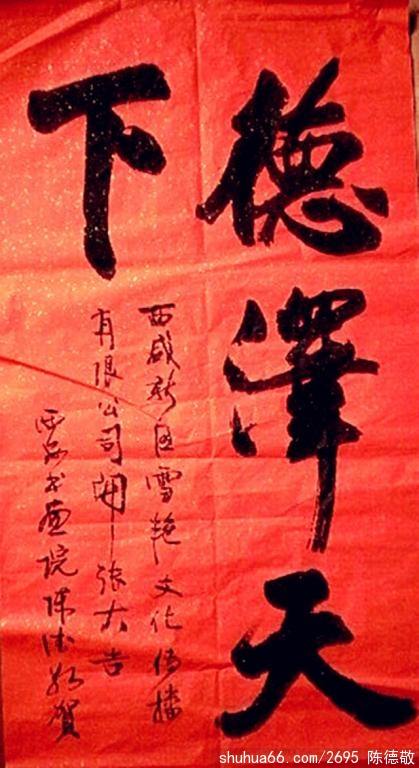 德澤天
下
西咸新区雪艳文化传播
有限公司開张大吉
西安书画院陈德敬贺
shuhua66.com/2695 陈德敬